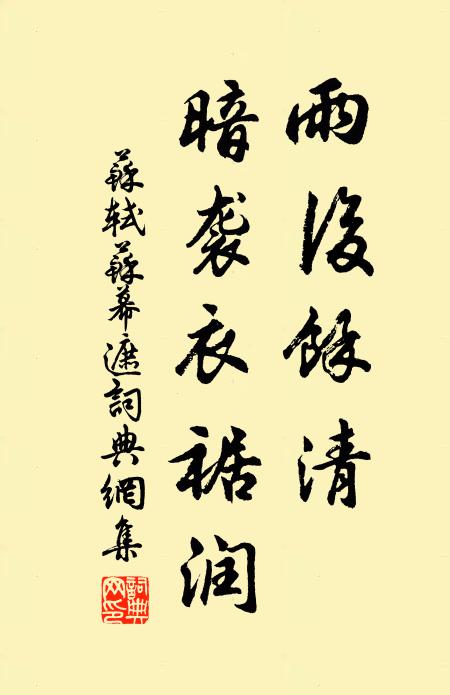 雨後餘清
暗袭衣裾润
蘇軾蘇幕遮詞典網集
詞典網印